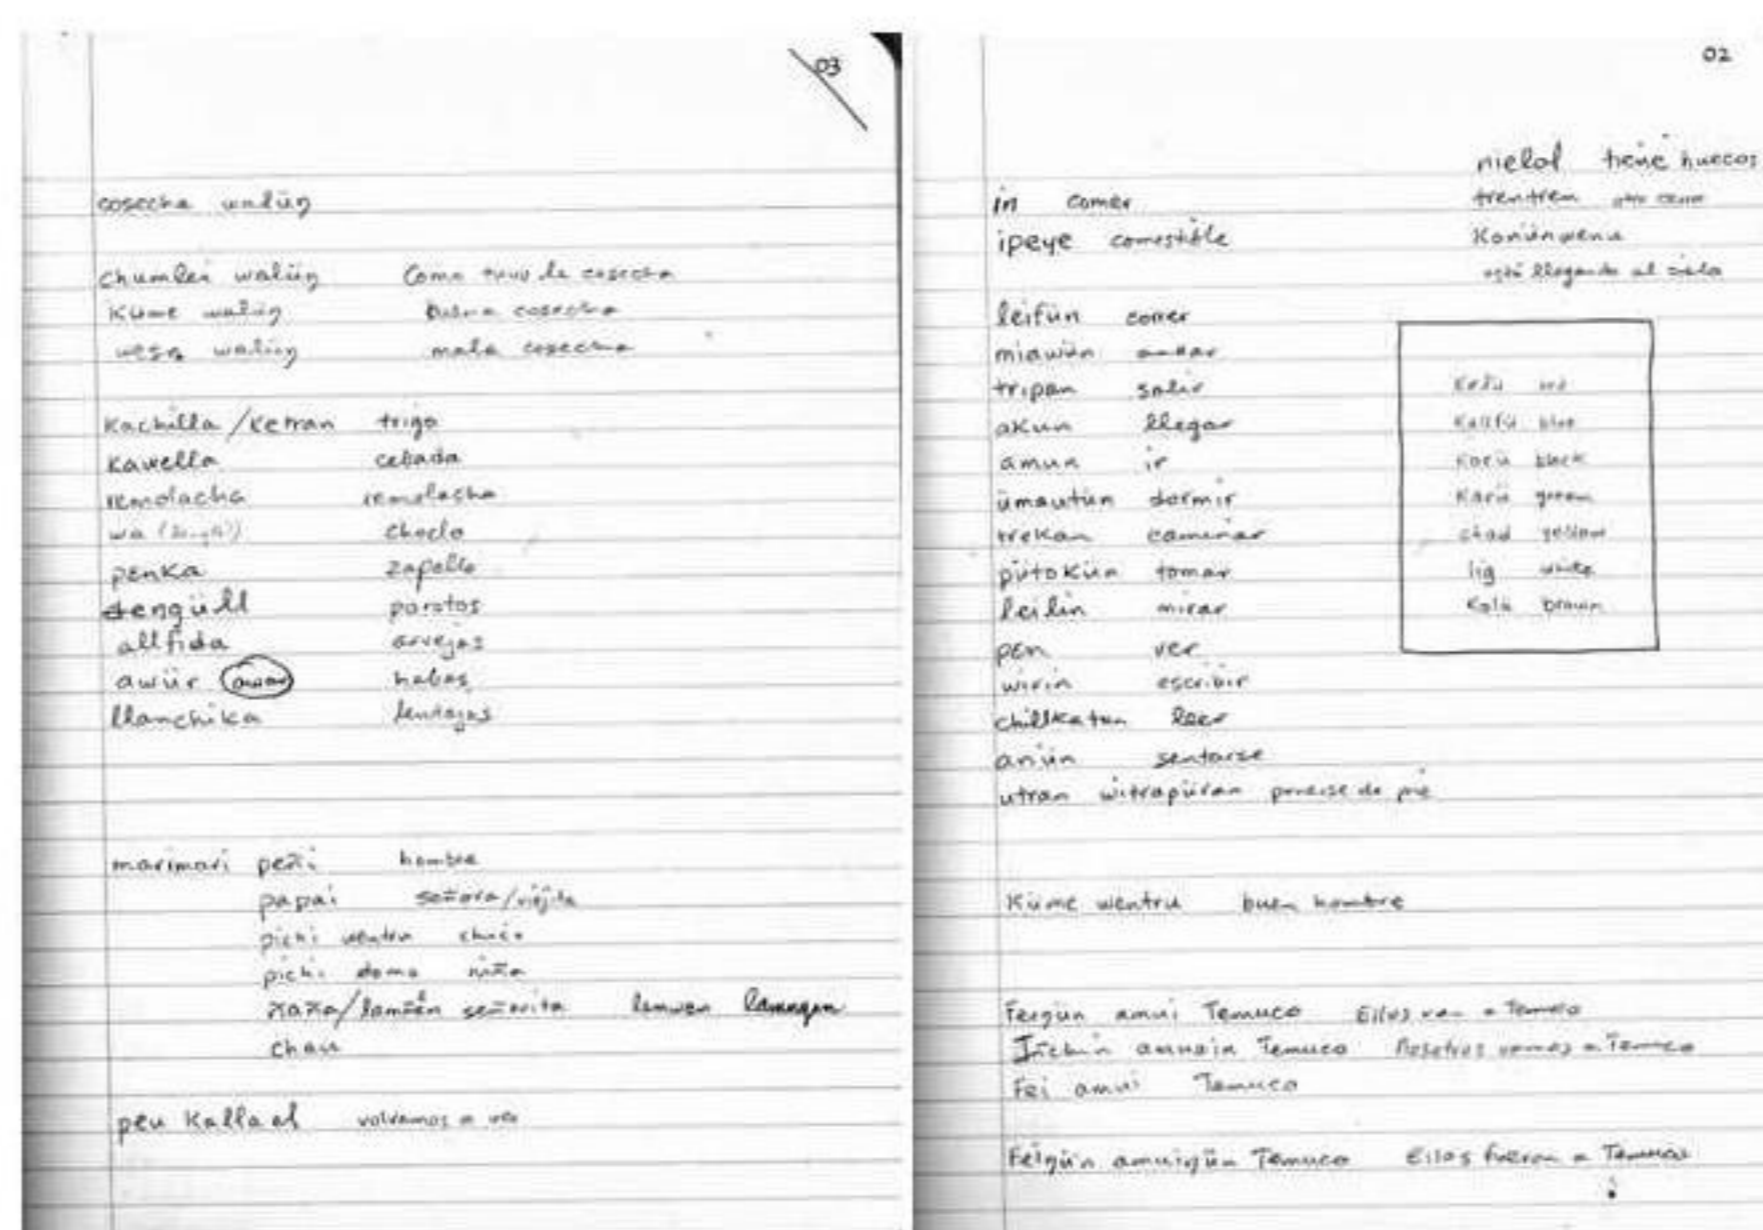 03
cosecha walüŋ
chumlei walüŋ Como tuvo la cosecha
Küme walüŋ buena cosecha
wesa walüŋ mala cosecha
Kachilla / Ketran trigo
Kawella cebada
remolacha remolacha
wa choclo
penka zapallo
dengüll porotos
allfida arvejas
awür awar habas
llanchika lentejas
marimari peñi hombre
papai señora/viejita
pichi wentru chico
pichi domo niña
ñaña/lamŋén señorita lamuen lamngen
chau
peu Kallael volvamos a ver
02
nielol tiene huecos
trentren otro cerro
Konünwenu
está llegando al cielo
in comer
ipeye comestible
leifün correr
miawün andar
tripan salir
akun llegar
amun ir
ümautün dormir
trekan caminar
pütokün tomar
leilin mirar
pen ver
wirin escribir
chillkatun leer
anün sentarse
utran witrapüran ponerse de pie
Kelü red
Kallfü blue
Kurü black
Karü green
chod yellow
lig white
Kolü brown
Küme wentru buen hombre
Feigün amui Temuco Ellos van a Temuco
Iñchin amuain Temuco Nosotros vamos a Temuco
Fei amui Temuco
Feigün amuigün Temuco Ellos fueron a Temuco